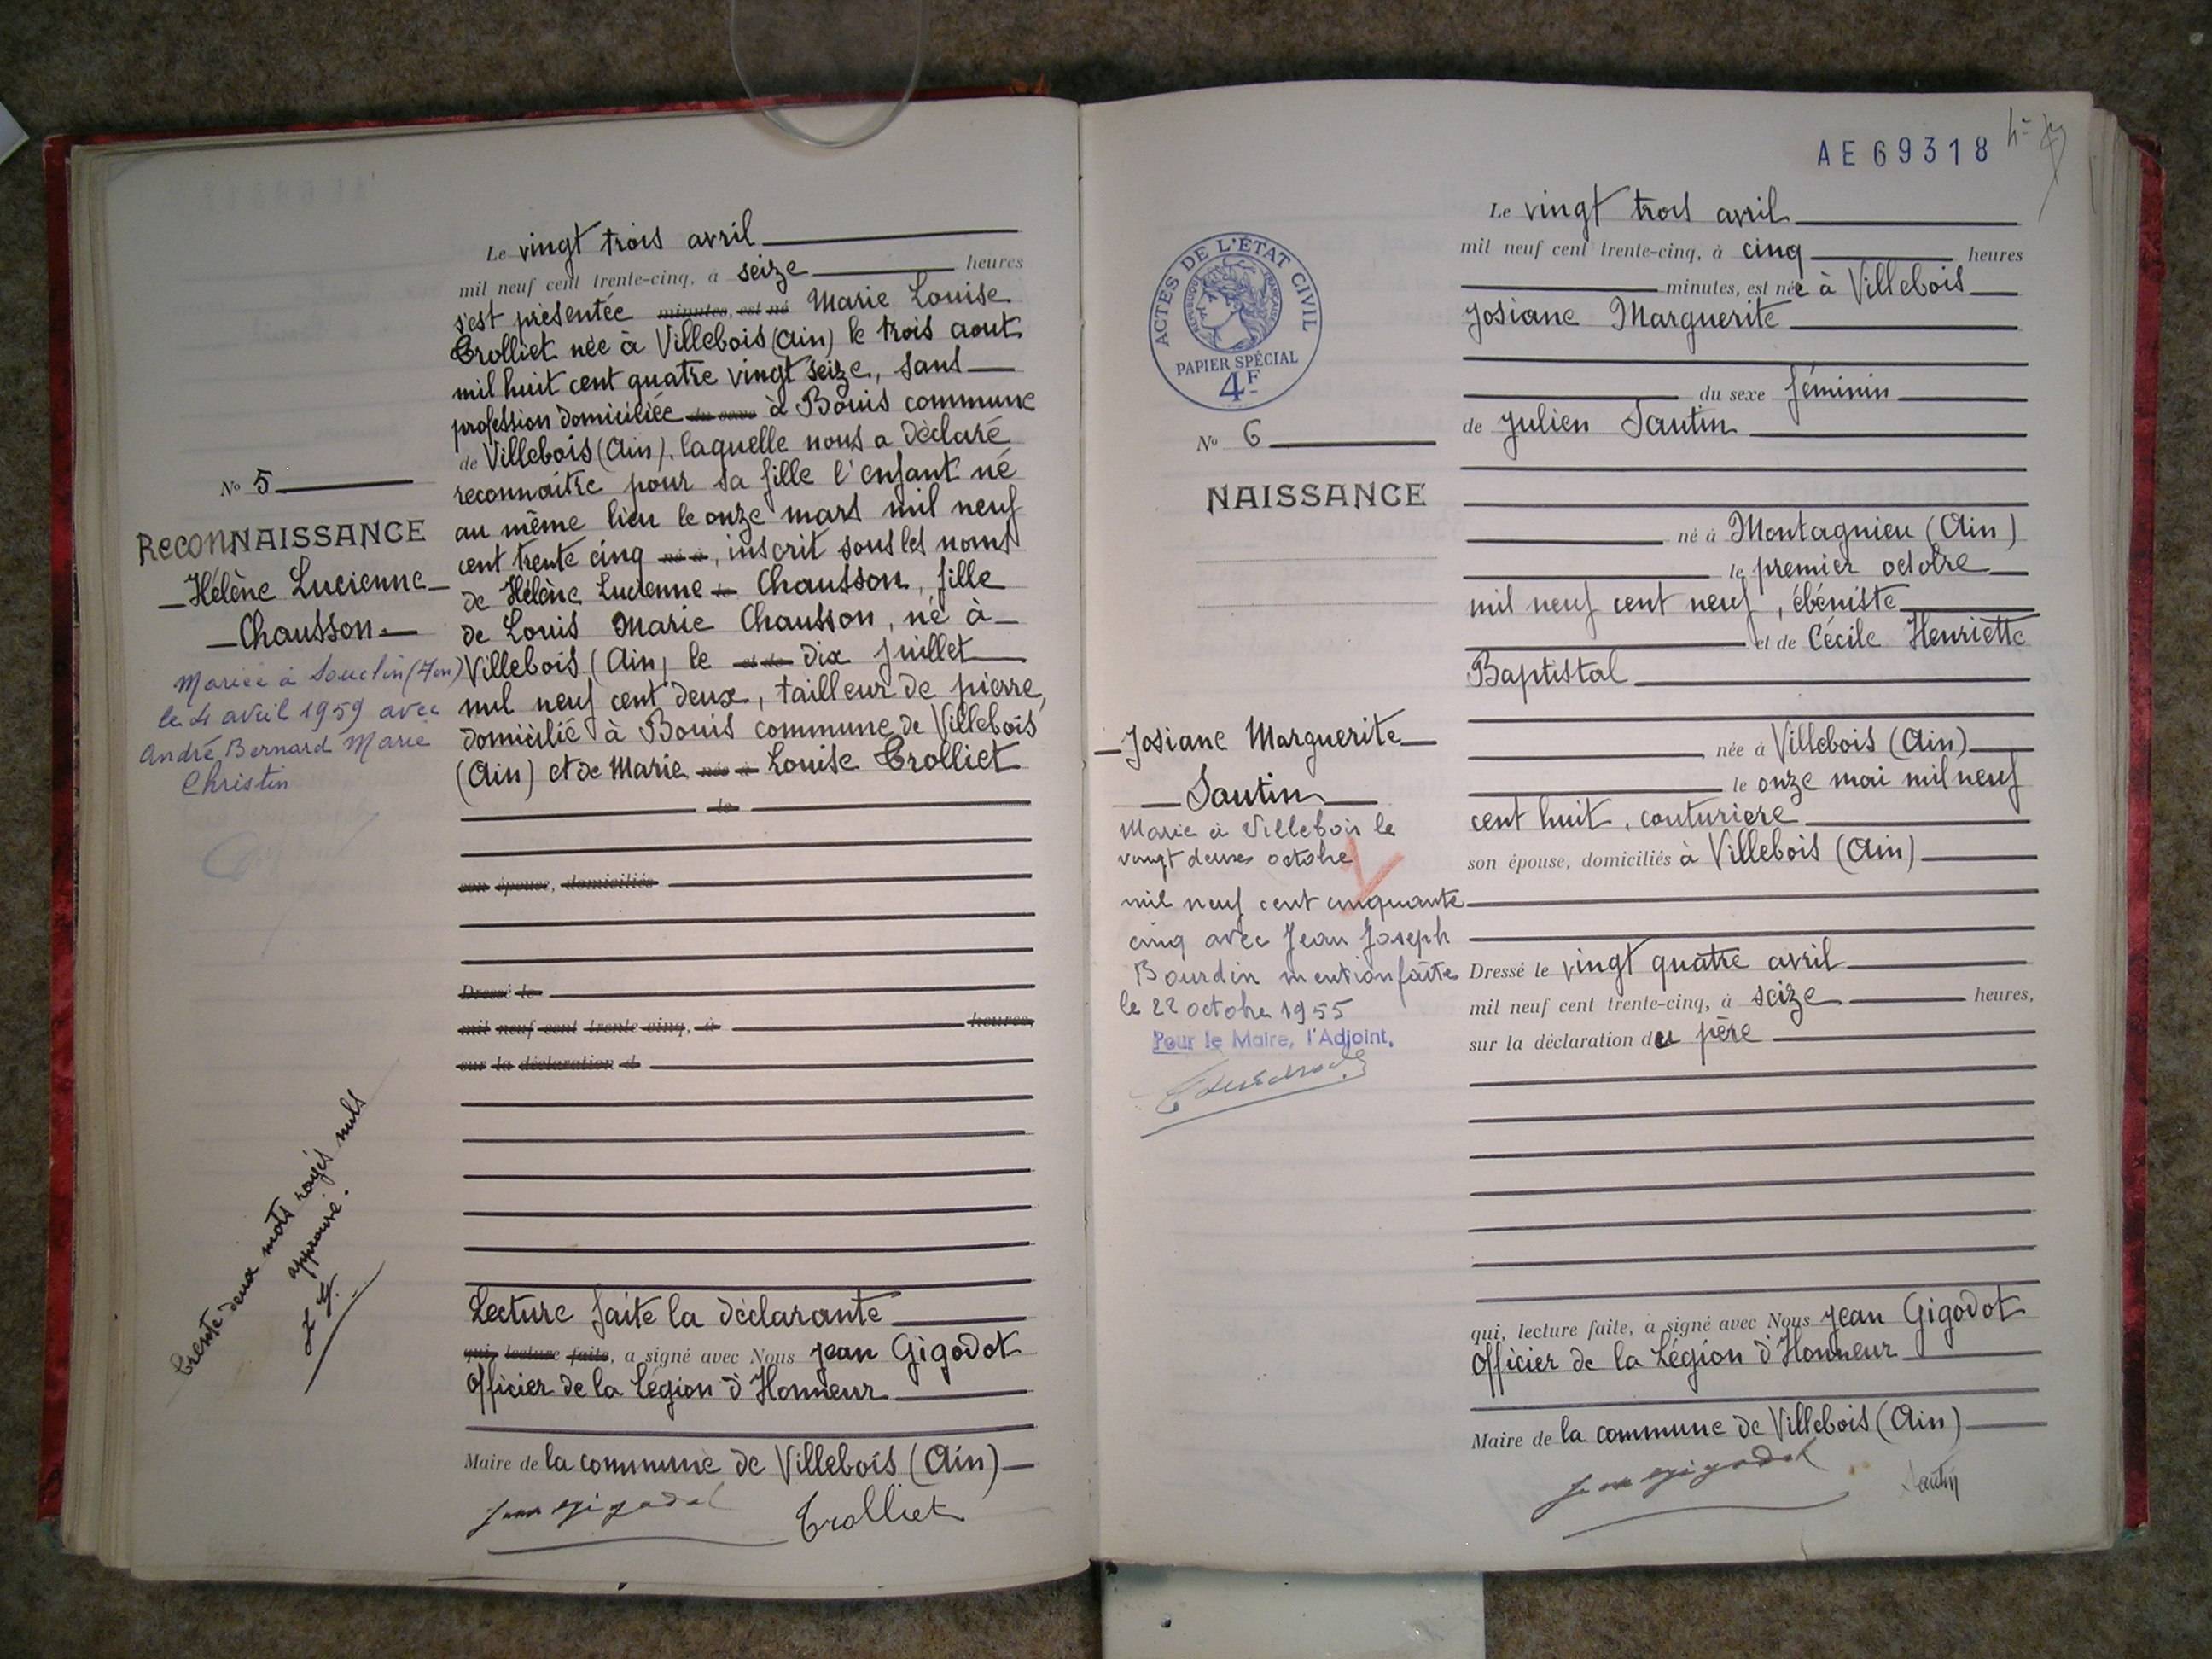 No 5
RECONNAISSANCE
Hélène Lucienne
Chausson
Mariée à Souclin (Ain)
le 4 avril 1959 avec
André Bernard Marie
Christin
trente deux mots rayés nuls
approuvé.
Le vingt trois avril
mil neuf cent trente-cinq, à seize heures
s'est présentée minutes, est né Marie Louise
Trolliet née à Villebois (Ain) le trois aout
mil huit cent quatre vingt seize, sans
profession domiciliée du sexe à Bouis commune
de Villebois (Ain), laquelle nous a déclaré
reconnaitre pour sa fille l'enfant né
au même lieu le onze mars mil neuf
cent trente cinq né à, inscrit sous les noms
de Hélène Lucienne le Chausson, fille
de Louis Marie Chausson, né à
Villebois (Ain) le et de dix juillet
mil neuf cent deux, tailleur de pierre,
domicilié à Bouis commune de Villebois
(Ain) et de Marie née à Louise Trolliet
le
son épouse, domiciliés
Dressé le
mil neuf cent trente-cinq, à heures,
sur la déclaration d
Lecture faite la déclarante
qui, lecture faite, a signé avec Nous Jean Gigodot
Officier de la Légion d'Honneur
Maire de la commune de Villebois (Ain)
Jean Gigodot Trolliet
AE69318
ACTES DE L'ÉTAT CIVIL
RÉPUBLIQUE FRANÇAISE
PAPIER SPÉCIAL
4F
No 6
NAISSANCE
Josiane Marguerite
Sautin
Marie à Villebois le
vingt deux octobre
mil neuf cent cinquante
cinq avec Jean Joseph
Bourdin mention faite
le 22 octobre 1955
Pour le Maire, l'Adjoint,
Le vingt trois avril
mil neuf cent trente-cinq, à cinq heures
minutes, est née à Villebois
Josiane Marguerite
du sexe féminin
de Julien Sautin
né à Montagnieu (Ain)
le premier octobre
mil neuf cent neuf, ébéniste
et de Cécile Henriette
Baptistal
née à Villebois (Ain)
le onze mai mil neuf
cent huit, couturiere
son épouse, domiciliés à Villebois (Ain)
Dressé le vingt quatre avril
mil neuf cent trente-cinq, à seize heures,
sur la déclaration du père
qui, lecture faite, a signé avec Nous Jean Gigodot
Officier de la Légion d'Honneur
Maire de la commune de Villebois (Ain)
Jean Gigodot Sautin